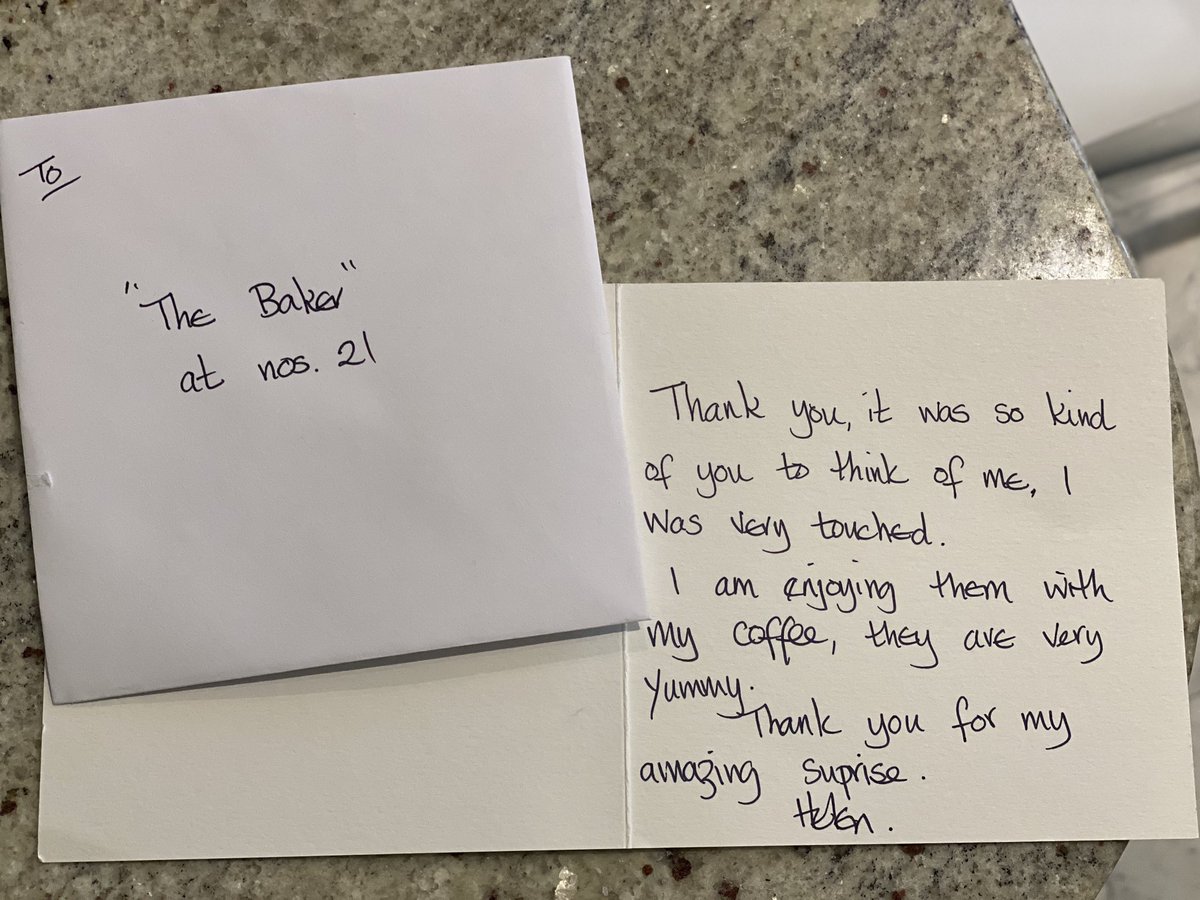 To
"The Baker"
at nos. 21
Thank you, it was so kind
of you to think of me, I
was very touched.
I am enjoying them with
my coffee, they are very
yummy.
Thank you for my
amazing suprise.
Helen.